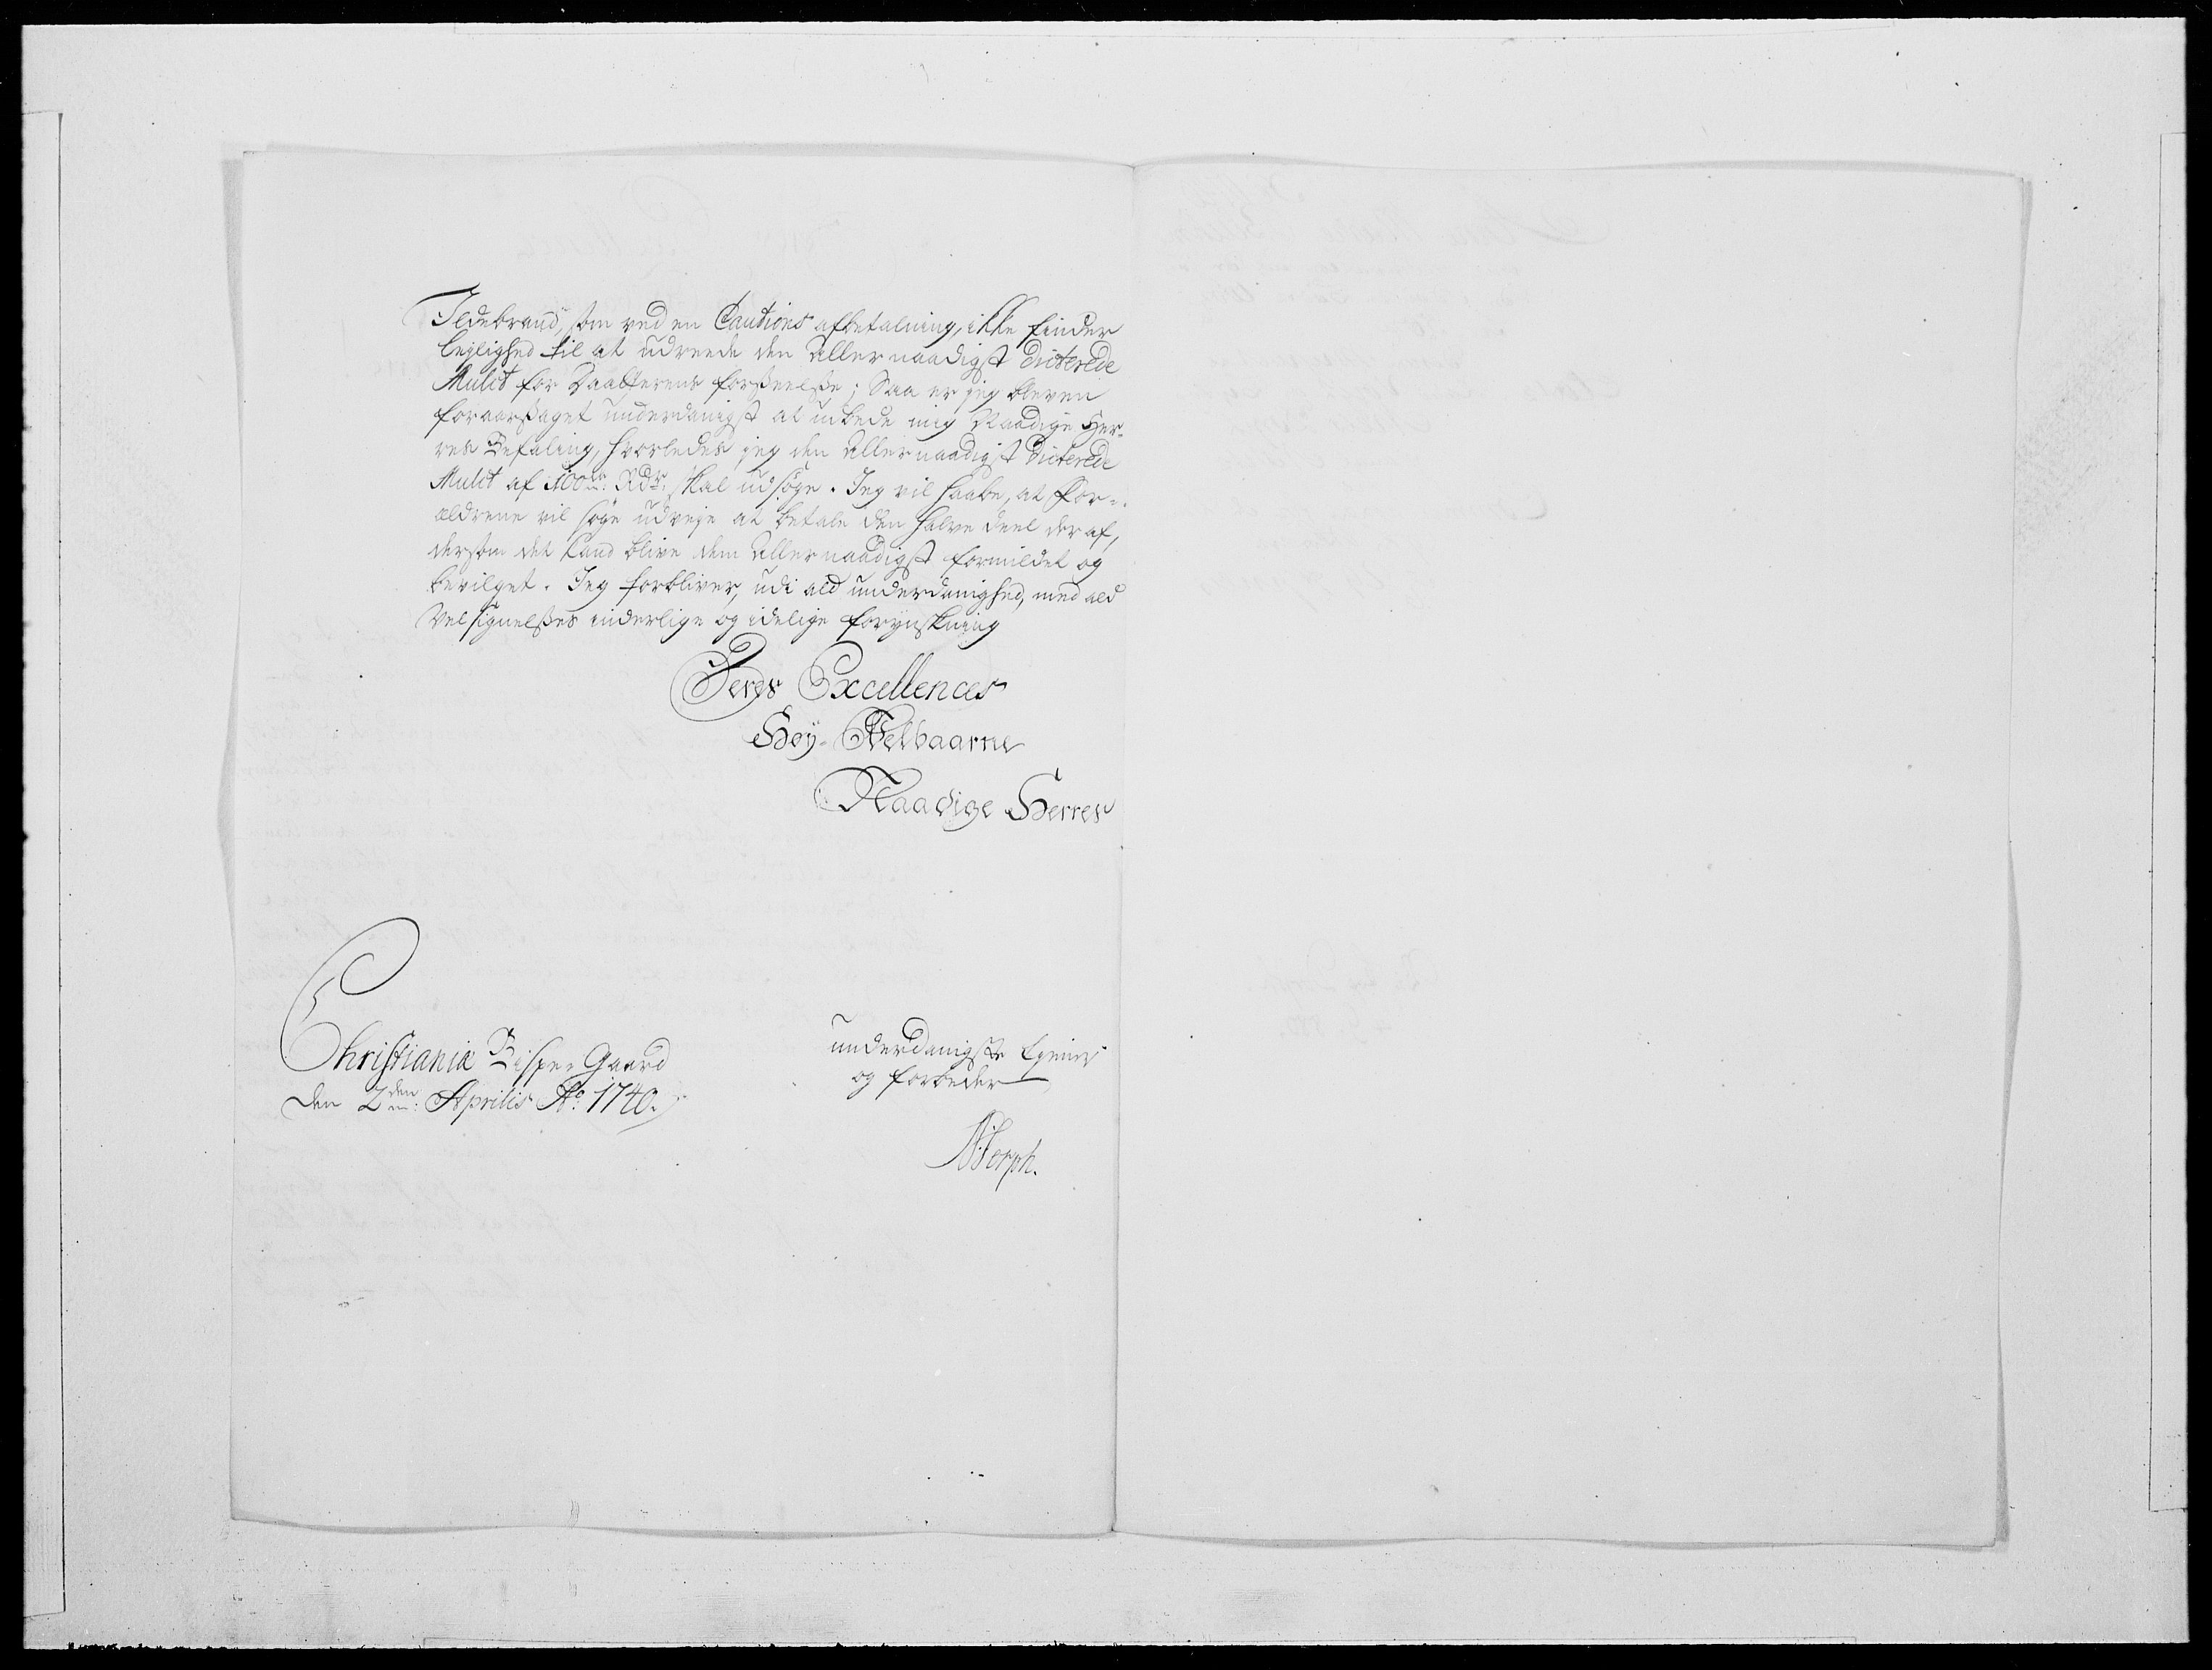 Ildebrand, som ved en Cautions afbetalning, ikke finder
lejlighed til at udreede den Allernaadigst dicterede
Mulct for Daatterens forseelsse; Saa er jeg bleven
foraarsaget underdanigst at udbede mig Naadige Her-
res Befaling, hvorledes jeg den Allernaadigst dicterede
Mulct af 100de Rdr. skal udsøge. Jeg vil haabe, at For-
ældrene vil søge udveje at betale den halve deel deraf,
dersom det kand blive dem Allernaadigst formildet og
bevilget. Jeg forbliver, udi ald underdanighed, med ald
Velsignelsses inderlige og idelige forynskning
Deres Excellences
Høy-Velbaarne
Naadige Herres
Christiania Bispe-Gaard
den 2den Aprilis Ao. 1740.
underdanigste tjener
og forbeder
NDorph.